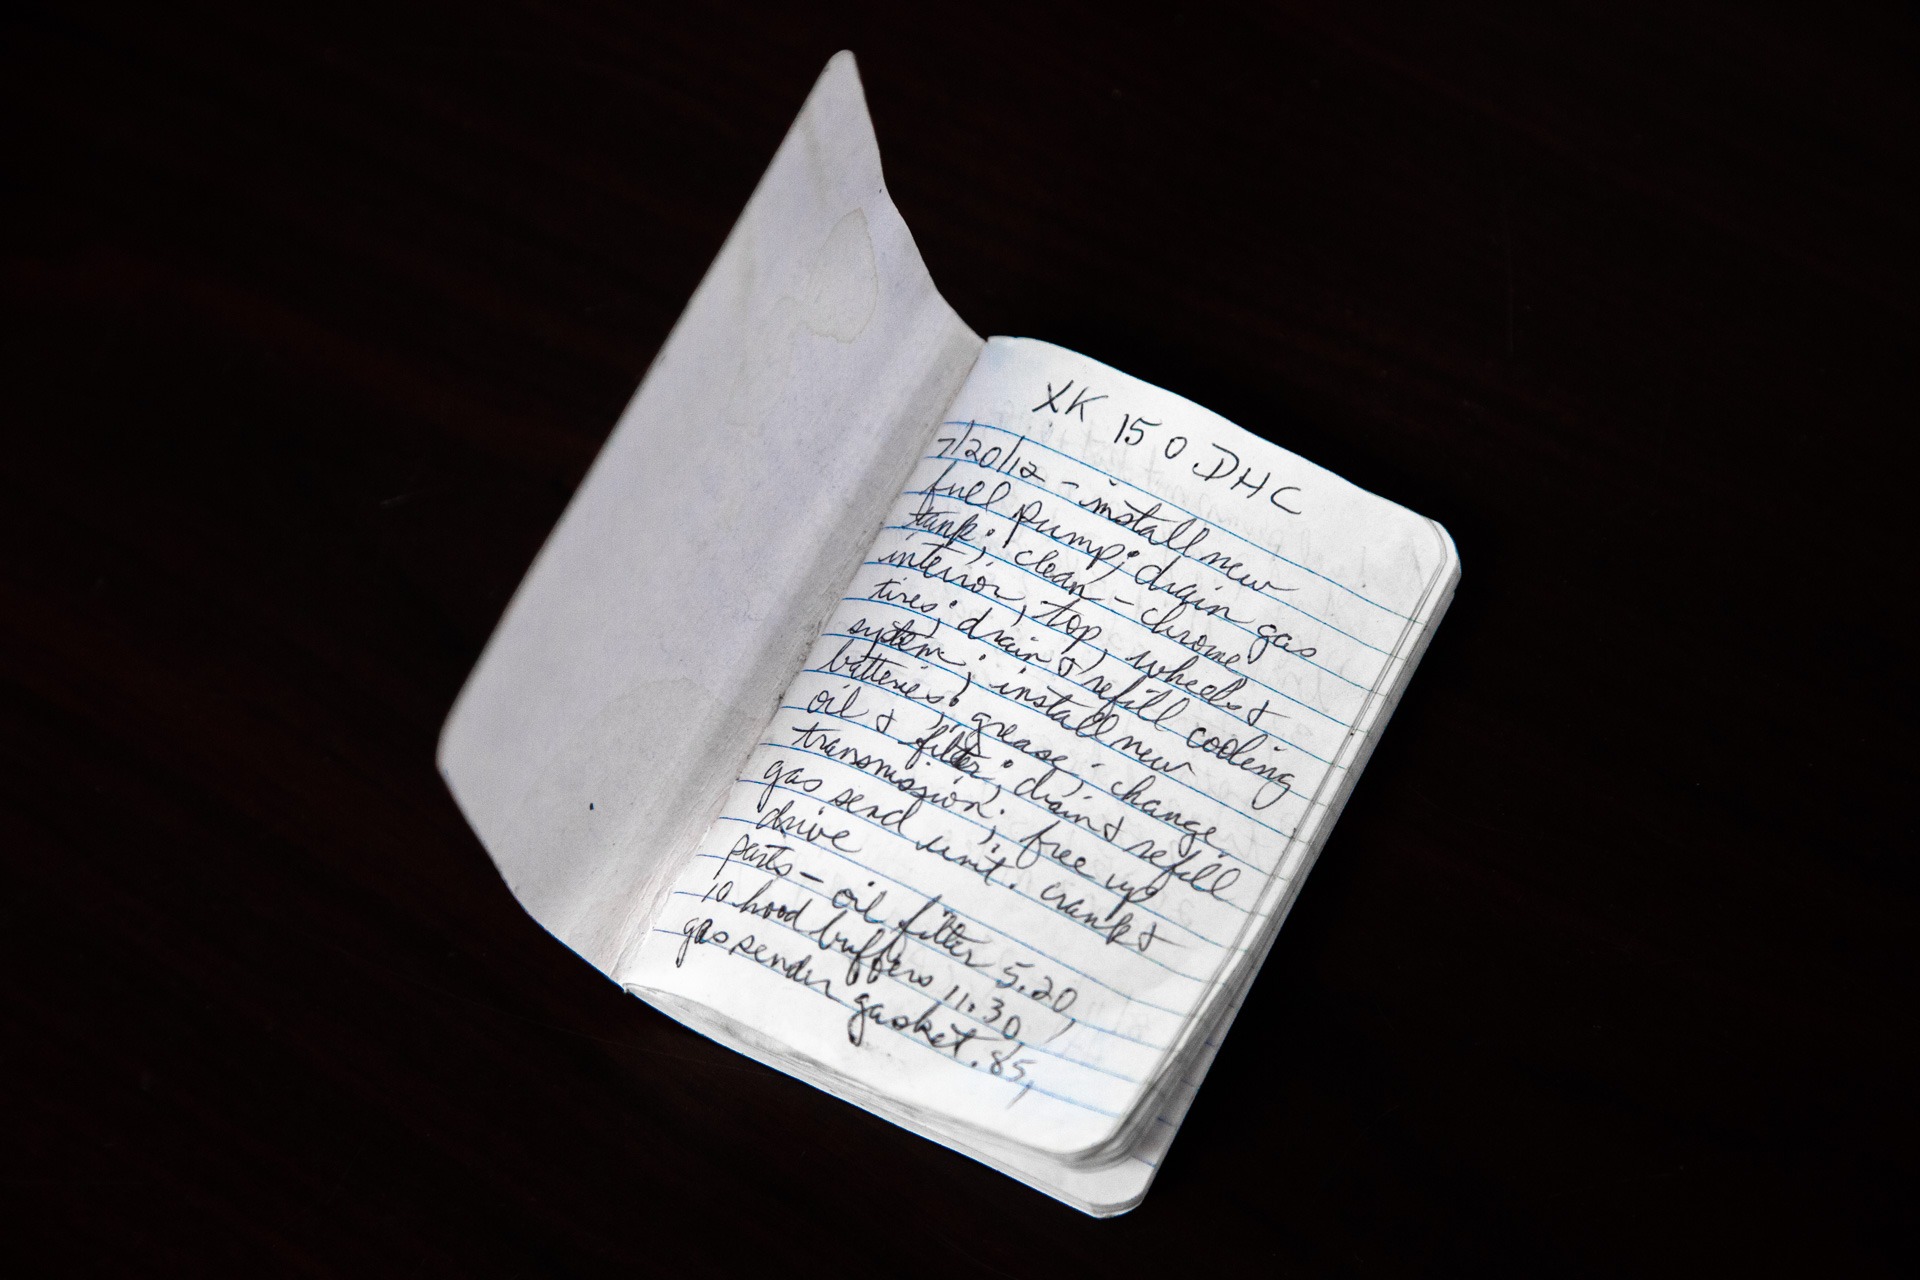 XK 150 DHC
7/20/12 - install new
fuel pump; drain gas
tank; clean - chrome
interior, top, wheels &
tires; drain & refill cooling
system; install new
batteries; grease; change
oil & filter; drain & refill
transmission; free up
gas send unit. crank &
drive
parts - oil filter 5.20,
10 hood buffers 11.30,
gas sender gasket .85,